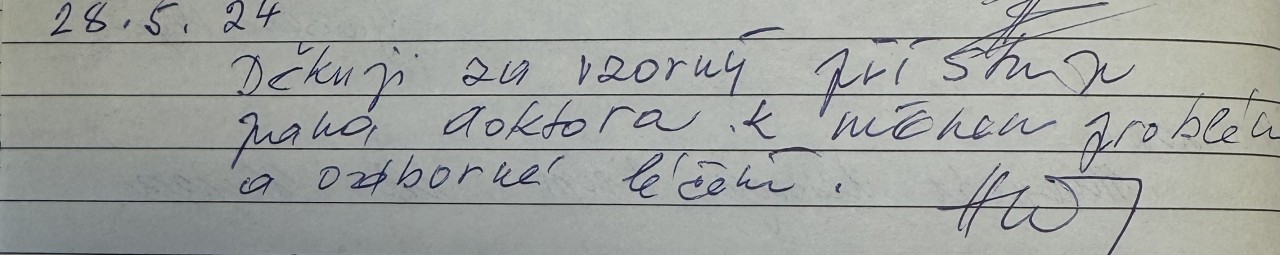 28.5.24
Děkuji za vzorný přístup
pana doktora k mému problému
a odborné léčení.